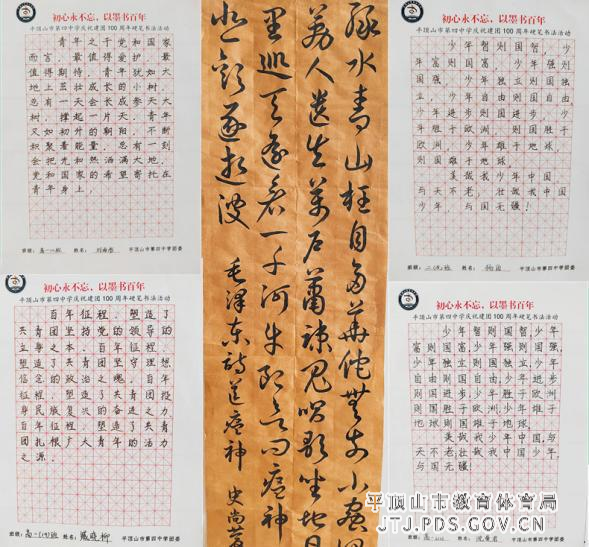 初心永不忘，以墨书百年
平顶山市第四中学庆祝建团100周年硬笔书法活动
青年之于党和国家
而言，最值得爱护、最
值得期待。青年犹如大
地上茁壮成长的小树，
总有一天会长成参天大
树，撑起一片天。青年
又如初升的朝阳，不断
积聚着能量，总有一刻
会把光和热洒满大地。
党和国家的希望寄托在
青年身上。
班级：高一 班 姓名：
平顶山市第四中学团委
初心永不忘，以墨书百年
平顶山市第四中学庆祝建团100周年硬笔书法活动
百年征程，塑造了
共青团坚持党的领导的
立身之本；百年征程，
塑造了共青团坚守理想
信念的政治之魂；百年
征程，塑造了共青团投
身民族复兴的奋进之力；
百年征程，塑造了共青
团扎根广大青年的活力
之源。
班级：高一(19)班 姓名：戴晓柳
平顶山市第四中学团委
绿水青山枉自多华佗无奈小虫何
万户萧疏鬼唱歌坐地日
巡天遥看一千河牛郎
问瘟神
逐逝波
毛泽东诗送瘟神
史尚
初心永不忘，以墨书百年
平顶山市第四中学庆祝建团100周年硬笔书法活动
少年智则国智，少
年富则国富，少年强则
国强，少年独立则国独
立，少年自由则国自由
少年进步则国进步，少
年胜于欧洲，则国胜于
欧洲，少年雄于地球，
则国雄于地球。
美哉我少年中国，
与天不老，壮哉我中国
少年，与国无疆！
班级： 班 姓名：
平顶山市第四中学团委
初心永不忘，以墨书百年
平顶山市第四中学庆祝建团100周年硬笔书法活动
少年智则国智，少年
富则国富，少年强则国强，
少年独立则国独立，少年
自由则国自由，少年进步
则国进步，少年胜于欧洲
则国胜于欧洲，少年雄于
地球则国雄于地球。
美哉我少年中国，与
天不老，壮哉我中国少年，
与国无疆！
班级： 姓名：
平顶山市第四中学团委
平顶山市教育体育局
JTJ.PDS.GOV.CN